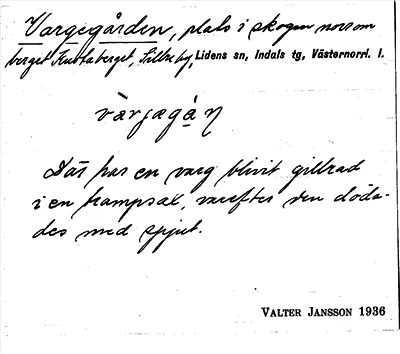 Vargegården, plats i skogen norr om
berget Kustaberget, Sillre by, Lidens sn, Indals tg, Västernorrl. l.
vàrjagà̱ṇ
Där har en varg blivit gillrad
i en krampsax, varefter den döda-
des med spjut.
VALTER JANSSON 1936